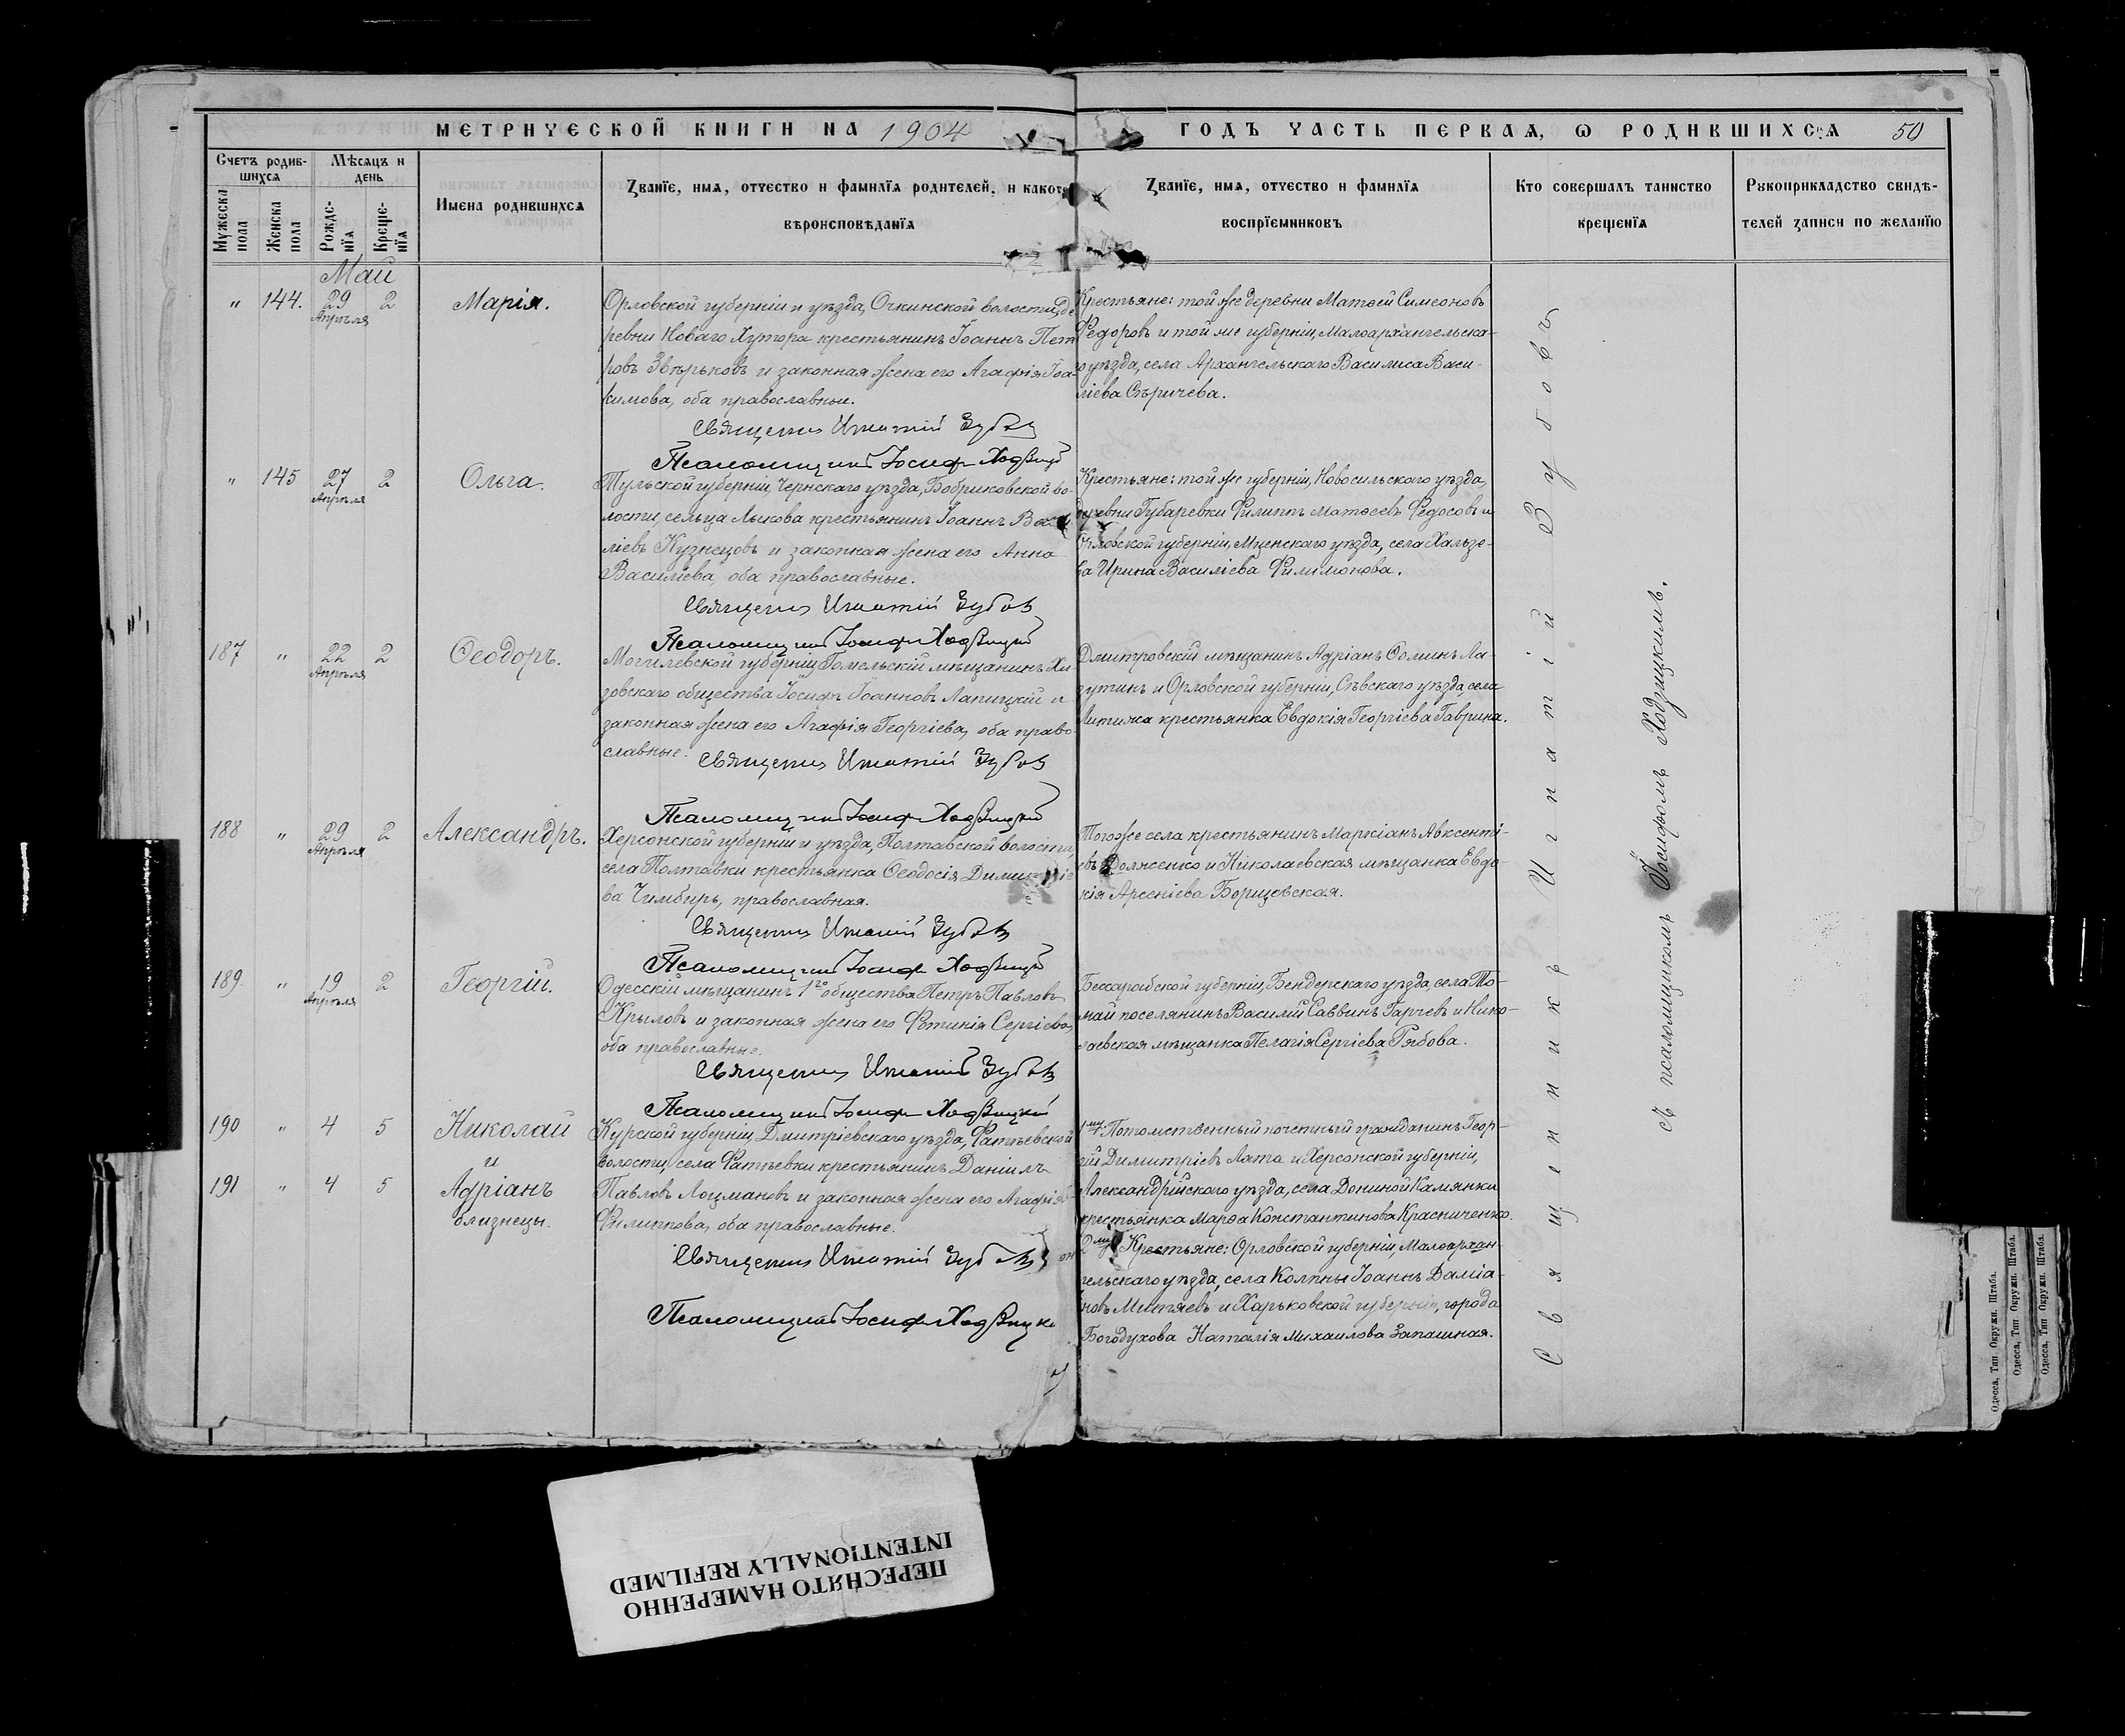 МЕТРИЧЕСКОЙ КНИГИ НА 1904 ГОДЪ ЧАСТЬ ПЕРВАЯ, Ѡ РОДИВШИХСѦ 50
Счетъ родив-
шихсѧ
Мѣсяцъ и
день
Мужеска
пола
Женска
пола
Рожде-
нїѧ
Креще-
нїѧ
Имена родившихсѧ
Званїе, имѧ, отчество и фамилїѧ родителей, и какого
вѣроисповѣданїѧ
Званїе, имѧ, отчество и фамилїѧ
воспрїемниковъ
Кто совершалъ таинство
крещенїѧ
Рукоприкладство свидѣ-
телей записи по желанїю
Май
" 144. 29 2
Апрѣля
Марія.
Орловской губерніи и уѣзда, Очкинской волости, де
ревни Новаго Хутора крестьянинъ Іоаннъ Пет
ровъ Звѣрьковъ и законная жена его Агафія Іоа-
кимова, оба православные.
Священникъ Игнатій Зубовъ
Псаломщикъ Іосифъ Ходзицкій
Крестьяне: той же деревни Матѳей Симеоновъ
Ѳедоровъ и той же губерніи, Малоархангельска-
го уѣзда, села Архангельскаго Василиса Васи-
ліева Сѣричева.
" 145 27 2
Апрѣля
Ольга.
Тульской губерніи, Чернскаго уѣзда, Бобриковской во-
лости, сельца Лыкова крестьянинъ Іоаннъ Васи
ліевъ Кузнецовъ и законная жена его Анна
Василіева, оба православные.
Священникъ Игнатій Зубовъ
Псаломщикъ Іосифъ Ходзицкій
Крестьяне: той же губерніи, Новосильскаго уѣзда,
деревни Губаревки Филиппъ Матѳеевъ Ѳедосовъ и
Орловской губерніи, Мценскаго уѣзда, села Хальзе-
ва Ирина Василіева Филимонова.
187 " 22 2
Апрѣля
Ѳеодоръ.
Могилевской губерніи, Гомельскій мѣщанинъ Хи-
зовскаго общества Іосифъ Іоанновъ Лапицкій и
законная жена его Агафія Георгіева, оба право-
славные.
Священникъ Игнатій Зубовъ
Псаломщикъ Іосифъ Ходзицкій
Дмитровскій мѣщанинъ Адріанъ Ѳоминъ Ла-
зутинъ и Орловской губерніи, Сѣвскаго уѣзда, села
Литижа крестьянка Евдокія Георгіева Гаврина.
188 " 29 2
Апрѣля
Александръ.
Херсонской губерніи и уѣзда, Полтавской волости,
села Полтавки крестьянка Ѳеодосія Димитріе
ва Чимбирь, православная.
Священникъ Игнатій Зубовъ
Псаломщикъ Іосифъ Ходзицкій
Тогоже села крестьянинъ Маркіанъ Авксенті-
евъ Долженко и Николаевская мѣщанка Евдо-
кія Арсеніева Борщевская.
189 " 19 2
Апрѣля
Георгій.
Одесскій мѣщанинъ 1го общества Петръ Павловъ
Крыловъ и законная жена его Фотинія Сергіева,
оба православные.
Священникъ Игнатій Зубовъ
Псаломщикъ Іосифъ Ходзицкій
Бессарабской губерніи, Бендерскаго уѣзда, села То-
май поселянинъ Василій Саввинъ Гарчевъ и Нико-
лаевская мѣщанка Пелагія Сергіева Рябова.
190 " 4 5
Николай
и
191 " 4 5
Адріанъ
близнецы.
Курской губерніи, Дмитріевскаго уѣзда, Фатѣевской
волости, села Фатѣевки крестьянинъ Даніилъ
Павловъ Лоцмановъ и законная жена его Агафія
Филиппова, оба православные.
Священникъ Игнатій Зубовъ
Псаломщикъ Іосифъ Ходзицкі
1му: Потомственный почетный гражданинъ Геор-
гій Димитріевъ Лата и Херсонской губерніи,
Александрійскаго уѣзда, села Дониной Камянки
крестьянка Марѳа Константинова Красниченко.
2му Крестьяне: Орловской губерніи, Малоархан-
гельскаго уѣзда, села Колпны Іоаннъ Даміа-
новъ Митяевъ и Харьковской губерніи, города
Богодухова Наталія Михаилова Запашная.
Священникъ Игнатій Зубовъ
съ псаломщикомъ Іосифомъ Ходзицкимъ.
Одесса, Тип. Окружн. Штаба.
Одесса, Тип. Окружн. Штаба.
Одесса, Тип. Окружн. Штаба.
ПЕРЕСНЯТО НАМЕРЕННО
INTENTIONALLY REFILMED